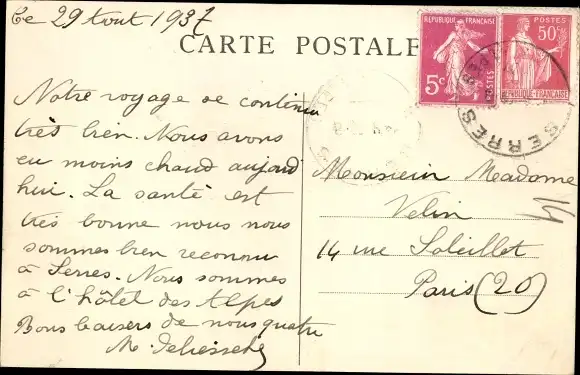 Ce 29 Aout 1937
CARTE POSTALE
RÉPUBLIQUE FRANÇAISE
5c
POSTES
POSTES
50c
RÉPUBLIQUE FRANÇAISE
SERRES
Notre voyage se continu
très bien. Nous avons
eu moins chaud aujourd
hui. La santé est
très bonne nous nous
sommes bien reconnu
à Serres. Nous sommes
à l'hôtel des Alpes
Bons baisers de nous quatre
M.
Monsieur Madame
Velin
14 rue Soleillet
Paris (20)